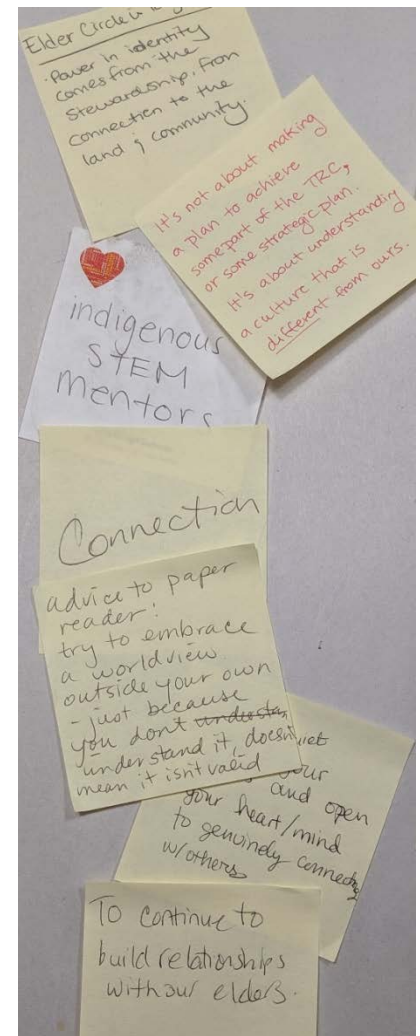 Elder Circle
· Power in identity
comes from the
Stewardship, from
connection to the
land & community.
It's not about making
a plan to achieve
some part of the TRC,
or some strategic plan.
It's about understanding
a culture that is
different from ours.
indigenous
STEM
mentors
Connection
advice to paper
reader:
try to embrace
a worldview
outside your own
- just because
you don't understan
understand it, doesn't
mean it isn't valid
and open
your heart/mind
to genuinely connecting
w/others
To continue to
build relationships
with our elders.